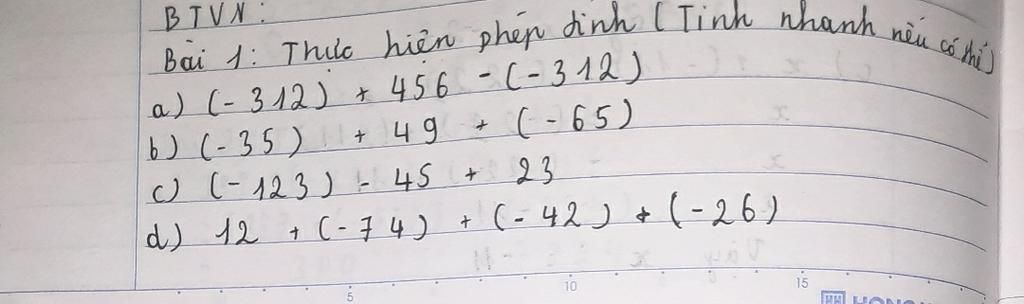 BTVN:
Bài 1: Thực hiện phép tính (Tính nhanh nếu có thể)
a) (-312) + 456 - (-312)
b) (-35) + 49 + (-65)
c) (-123) - 45 + 23
d) 12 + (-74) + (-42) + (-26)
5 10 15